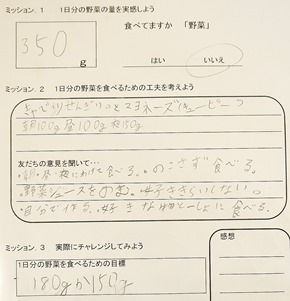 ミッション. 1　1日分の野菜の量を実感しよう
食べてますか「野菜」
350 g
はい　いいえ
ミッション. 2　1日分の野菜を食べるための工夫を考えよう
きゃべつせんぎり
マヨネーズ(キューピー)
朝100g 昼100g 夜150g
友だちの意見を聞いて…
・朝・昼・夜にわけて食べる。・のこさず食べる。
・野菜ジュースをのむ。・好ききらいしない。
・自分で作る。・好きな物といっしょに食べる。
ミッション. 3　実際にチャレンジしてみよう
感想
1日分の野菜を食べるための目標
180gか150g